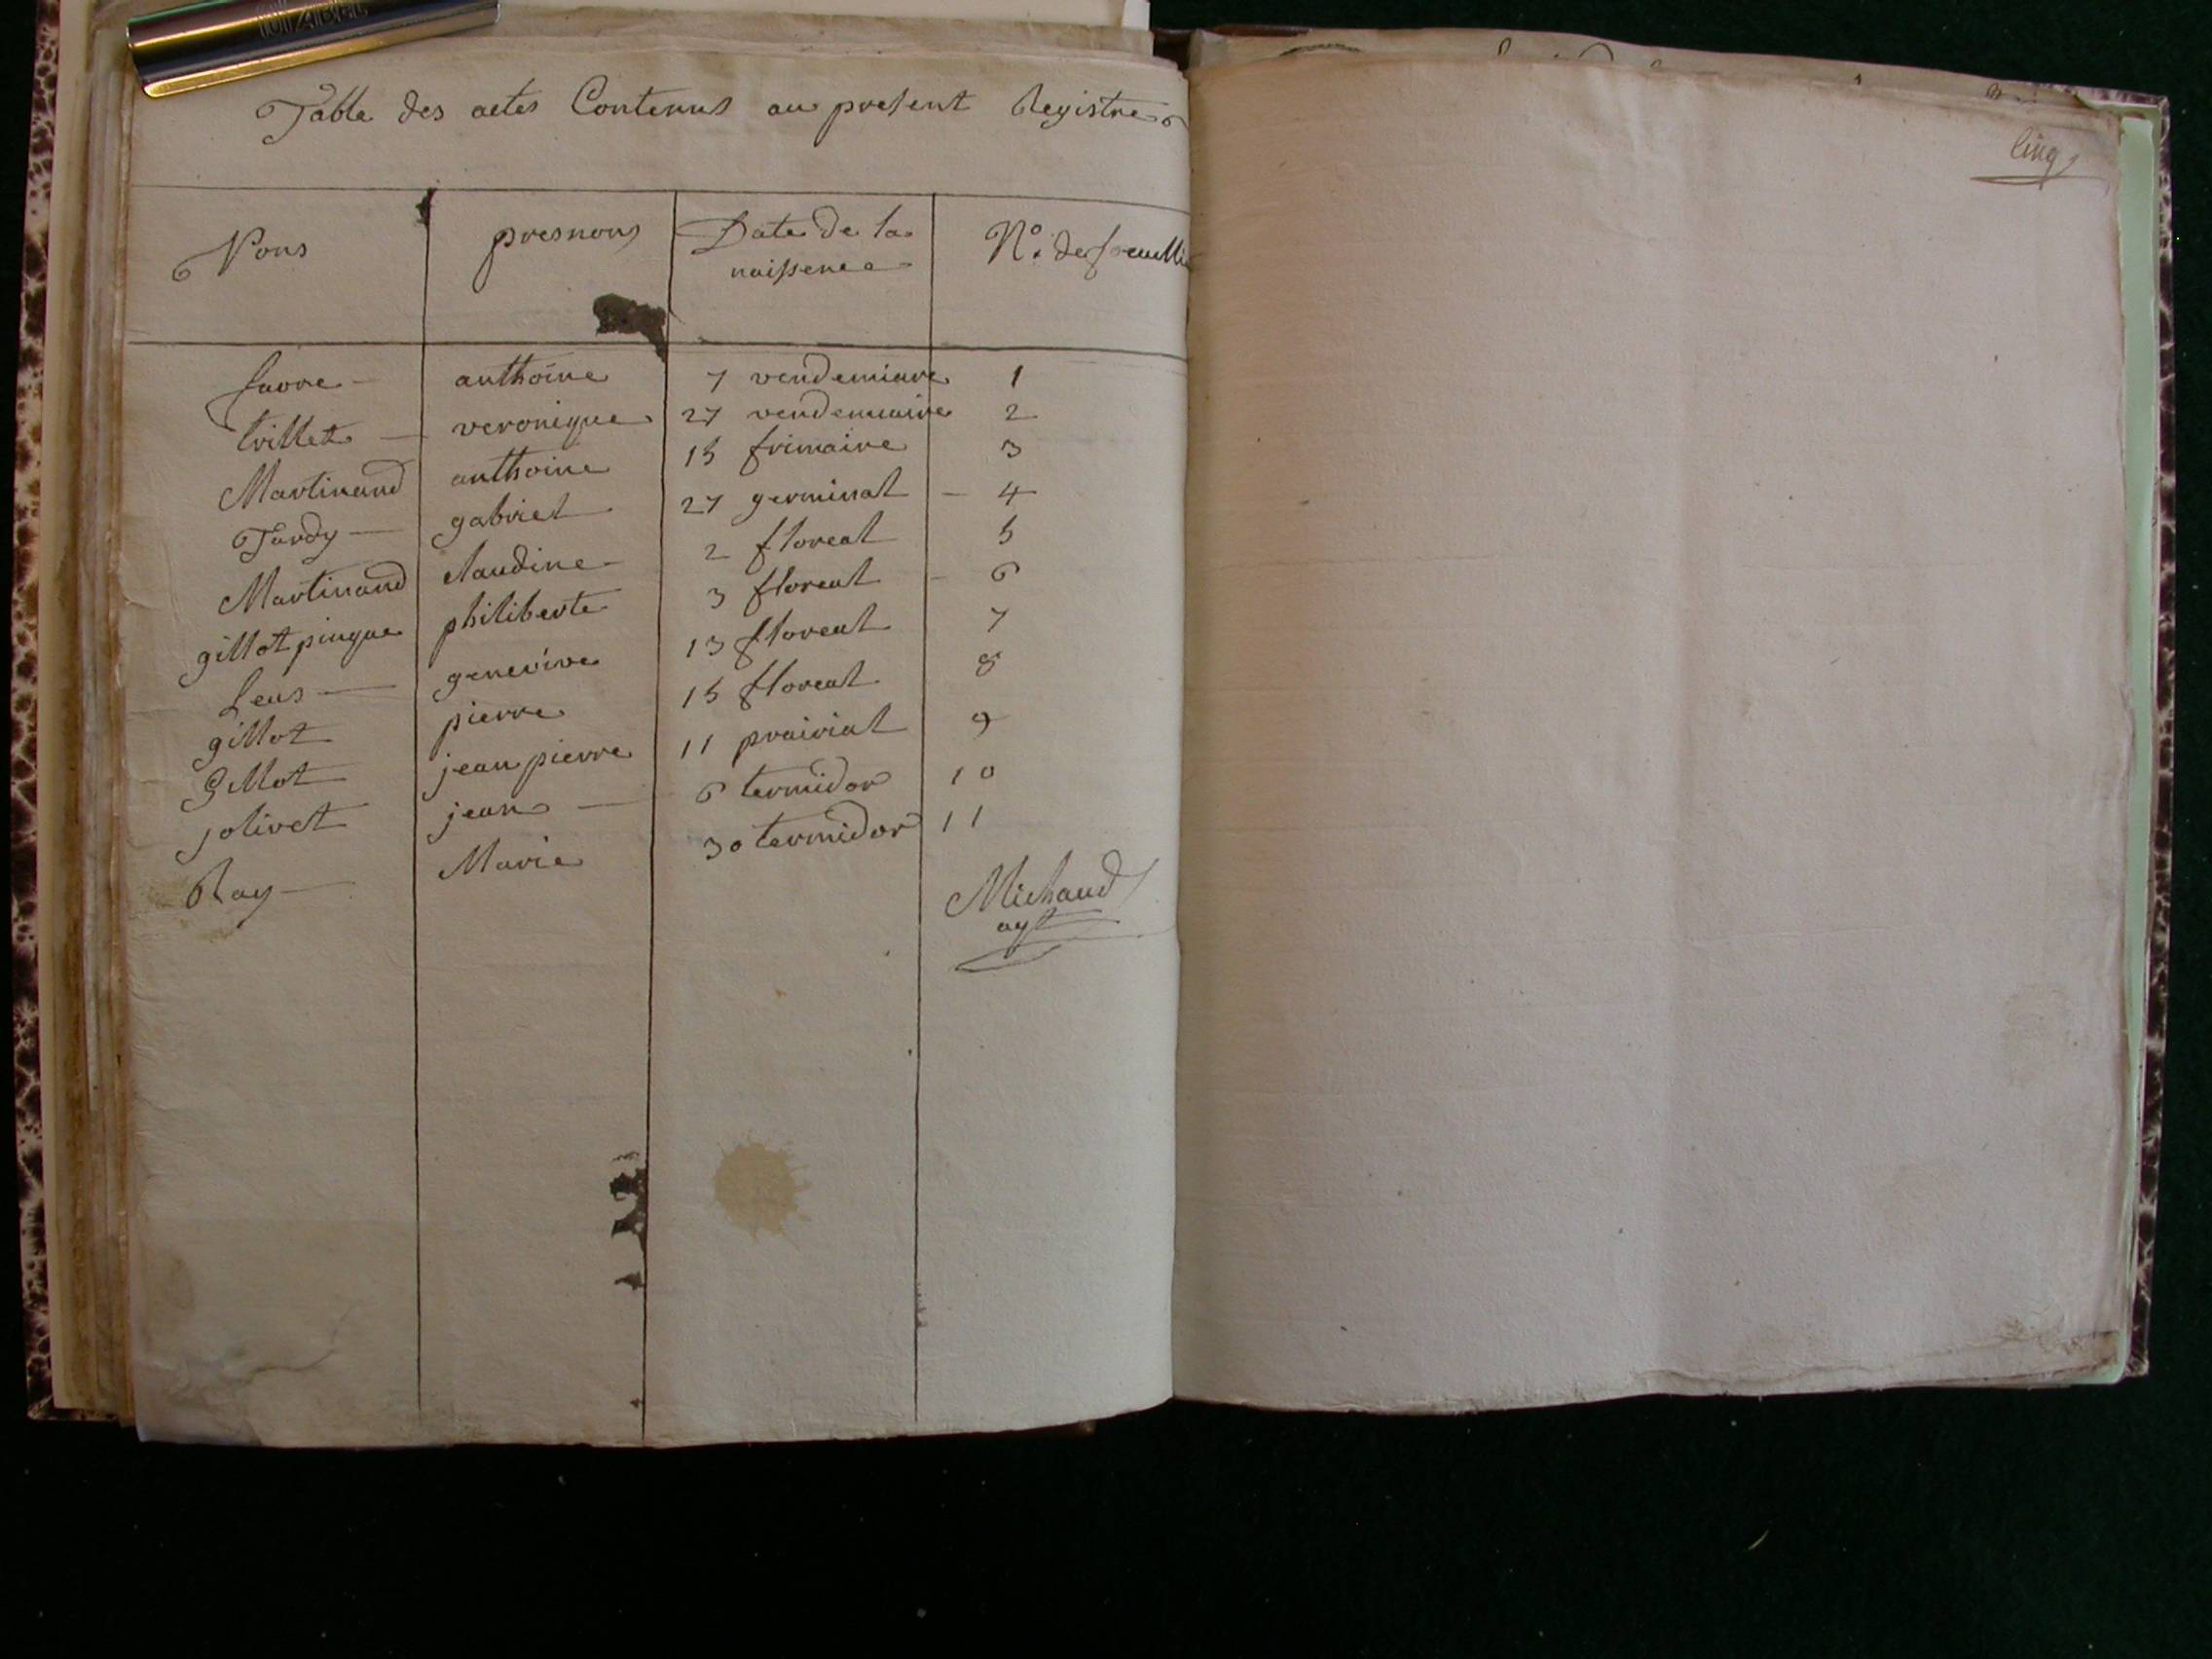 Table des actes Contenus au present Registre
Noms presnoms Date de la naissence N.° de feuille
favre anthoine 7 vendemiare 1
trillet veronique 27 vendemiaire 2
Martinand anthoine 15 frimaire 3
Tardy gabriel 27 germinal 4
Martinand claudine 2 floreal 5
gillot pingue philiberte 3 floreal 6
Leus genevive 13 floreal 7
gillot pierre 15 floreal 8
Gillot jean pierre 11 prairial 9
jolivet jean 6 termidor 10
Ray Marie 30 termidor 11
Michaud
agt
Cinq